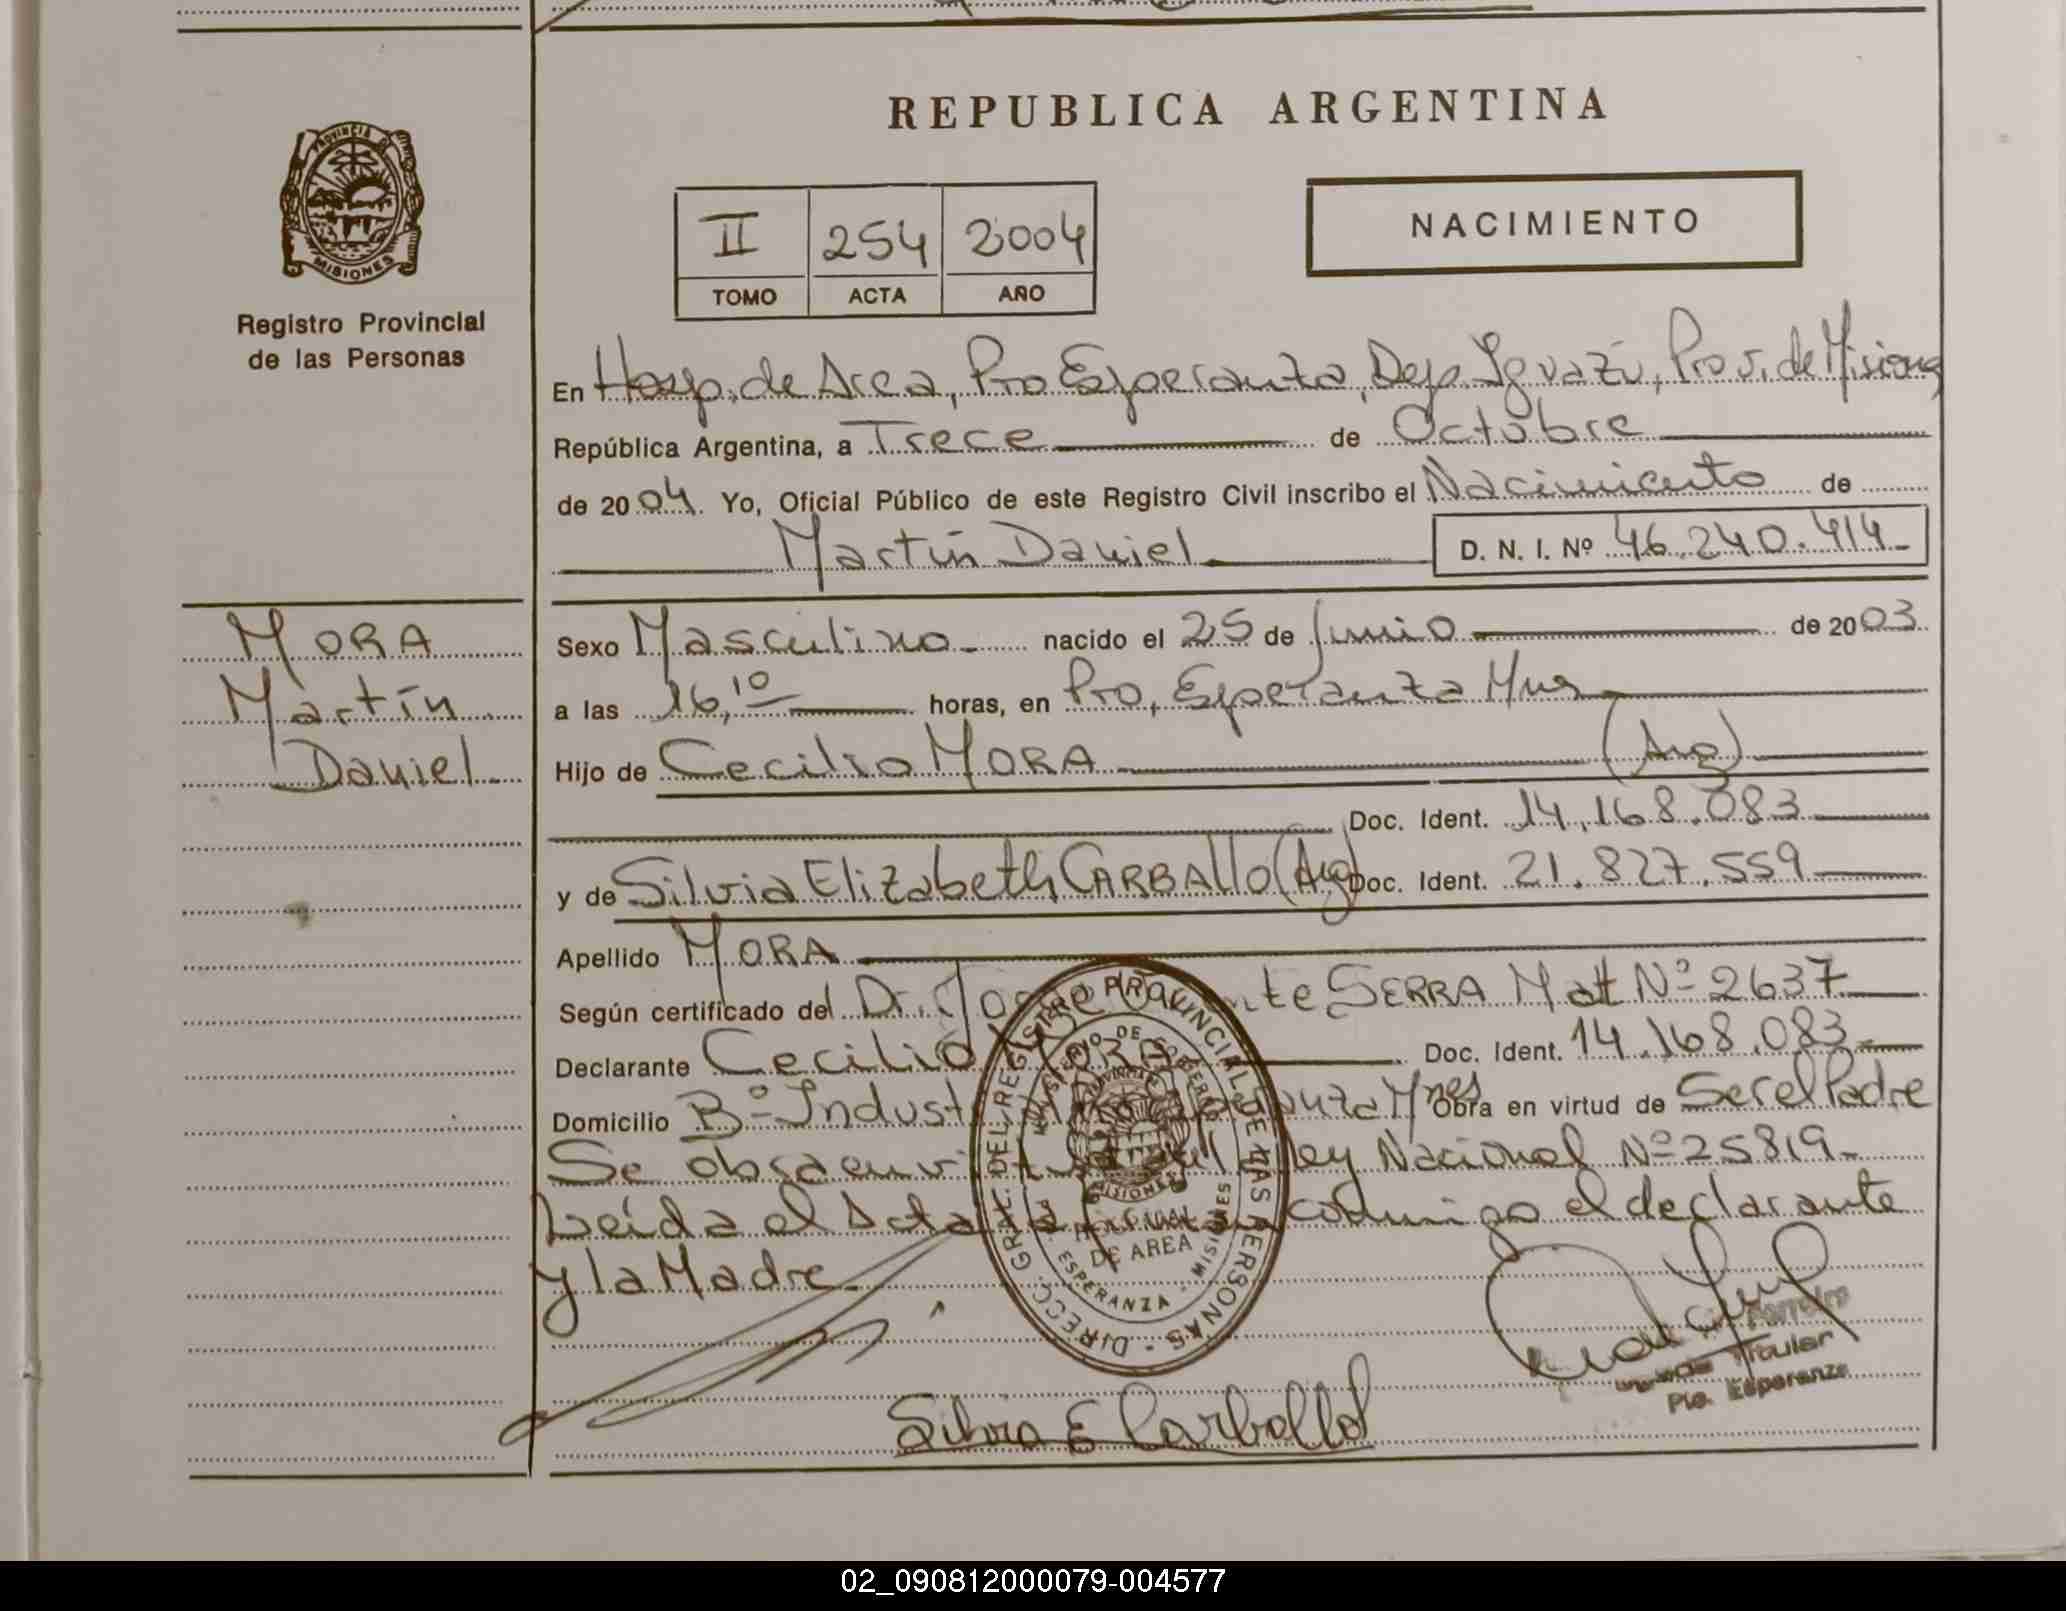 REPUBLICA ARGENTINA
PROVINCIA DE
MISIONES
Registro Provincial
de las Personas
II 254 2004
TOMO ACTA AÑO
NACIMIENTO
En Hosp. de Area, Pto Esperanza, Dep. Iguazú, Prov. de Misiones
República Argentina, a Trece de Octubre
de 2004. Yo, Oficial Público de este Registro Civil inscribo el Nacimiento de
Martín Daniel D. N. I. Nº 46.240.414-
MORA
Martín
Daniel
Sexo Masculino nacido el 25 de Junio de 2003
a las 16,10 horas, en Pto. Esperanza Mnes
Hijo de Cecilio MORA (Arg)
Doc. Ident. 14.168.083
y de Silvia Elizabeth CARBALLO (Arg) Doc. Ident. 21.827.559
Apellido MORA
Según certificado del Dr. SERRA Mat Nº 2637
Declarante Cecilio MORA Doc. Ident. 14.168.083
Domicilio Bº Indust Mnes Obra en virtud de Ser el Padre
Se obra en Ley Nacional Nº 25819-
Leída el Acta conmigo el declarante
y la Madre.
DIRECC. GRAL. DEL REGISTRO PROVINCIAL DE LAS PERSONAS
MINISTERIO DE GOBIERNO
MISIONES
HOSPITAL
DE AREA
ESPERANZA - MISIONES
Silvia E Carballo
Ferreira
Titular
Pto. Esperanza
02_090812000079-004577